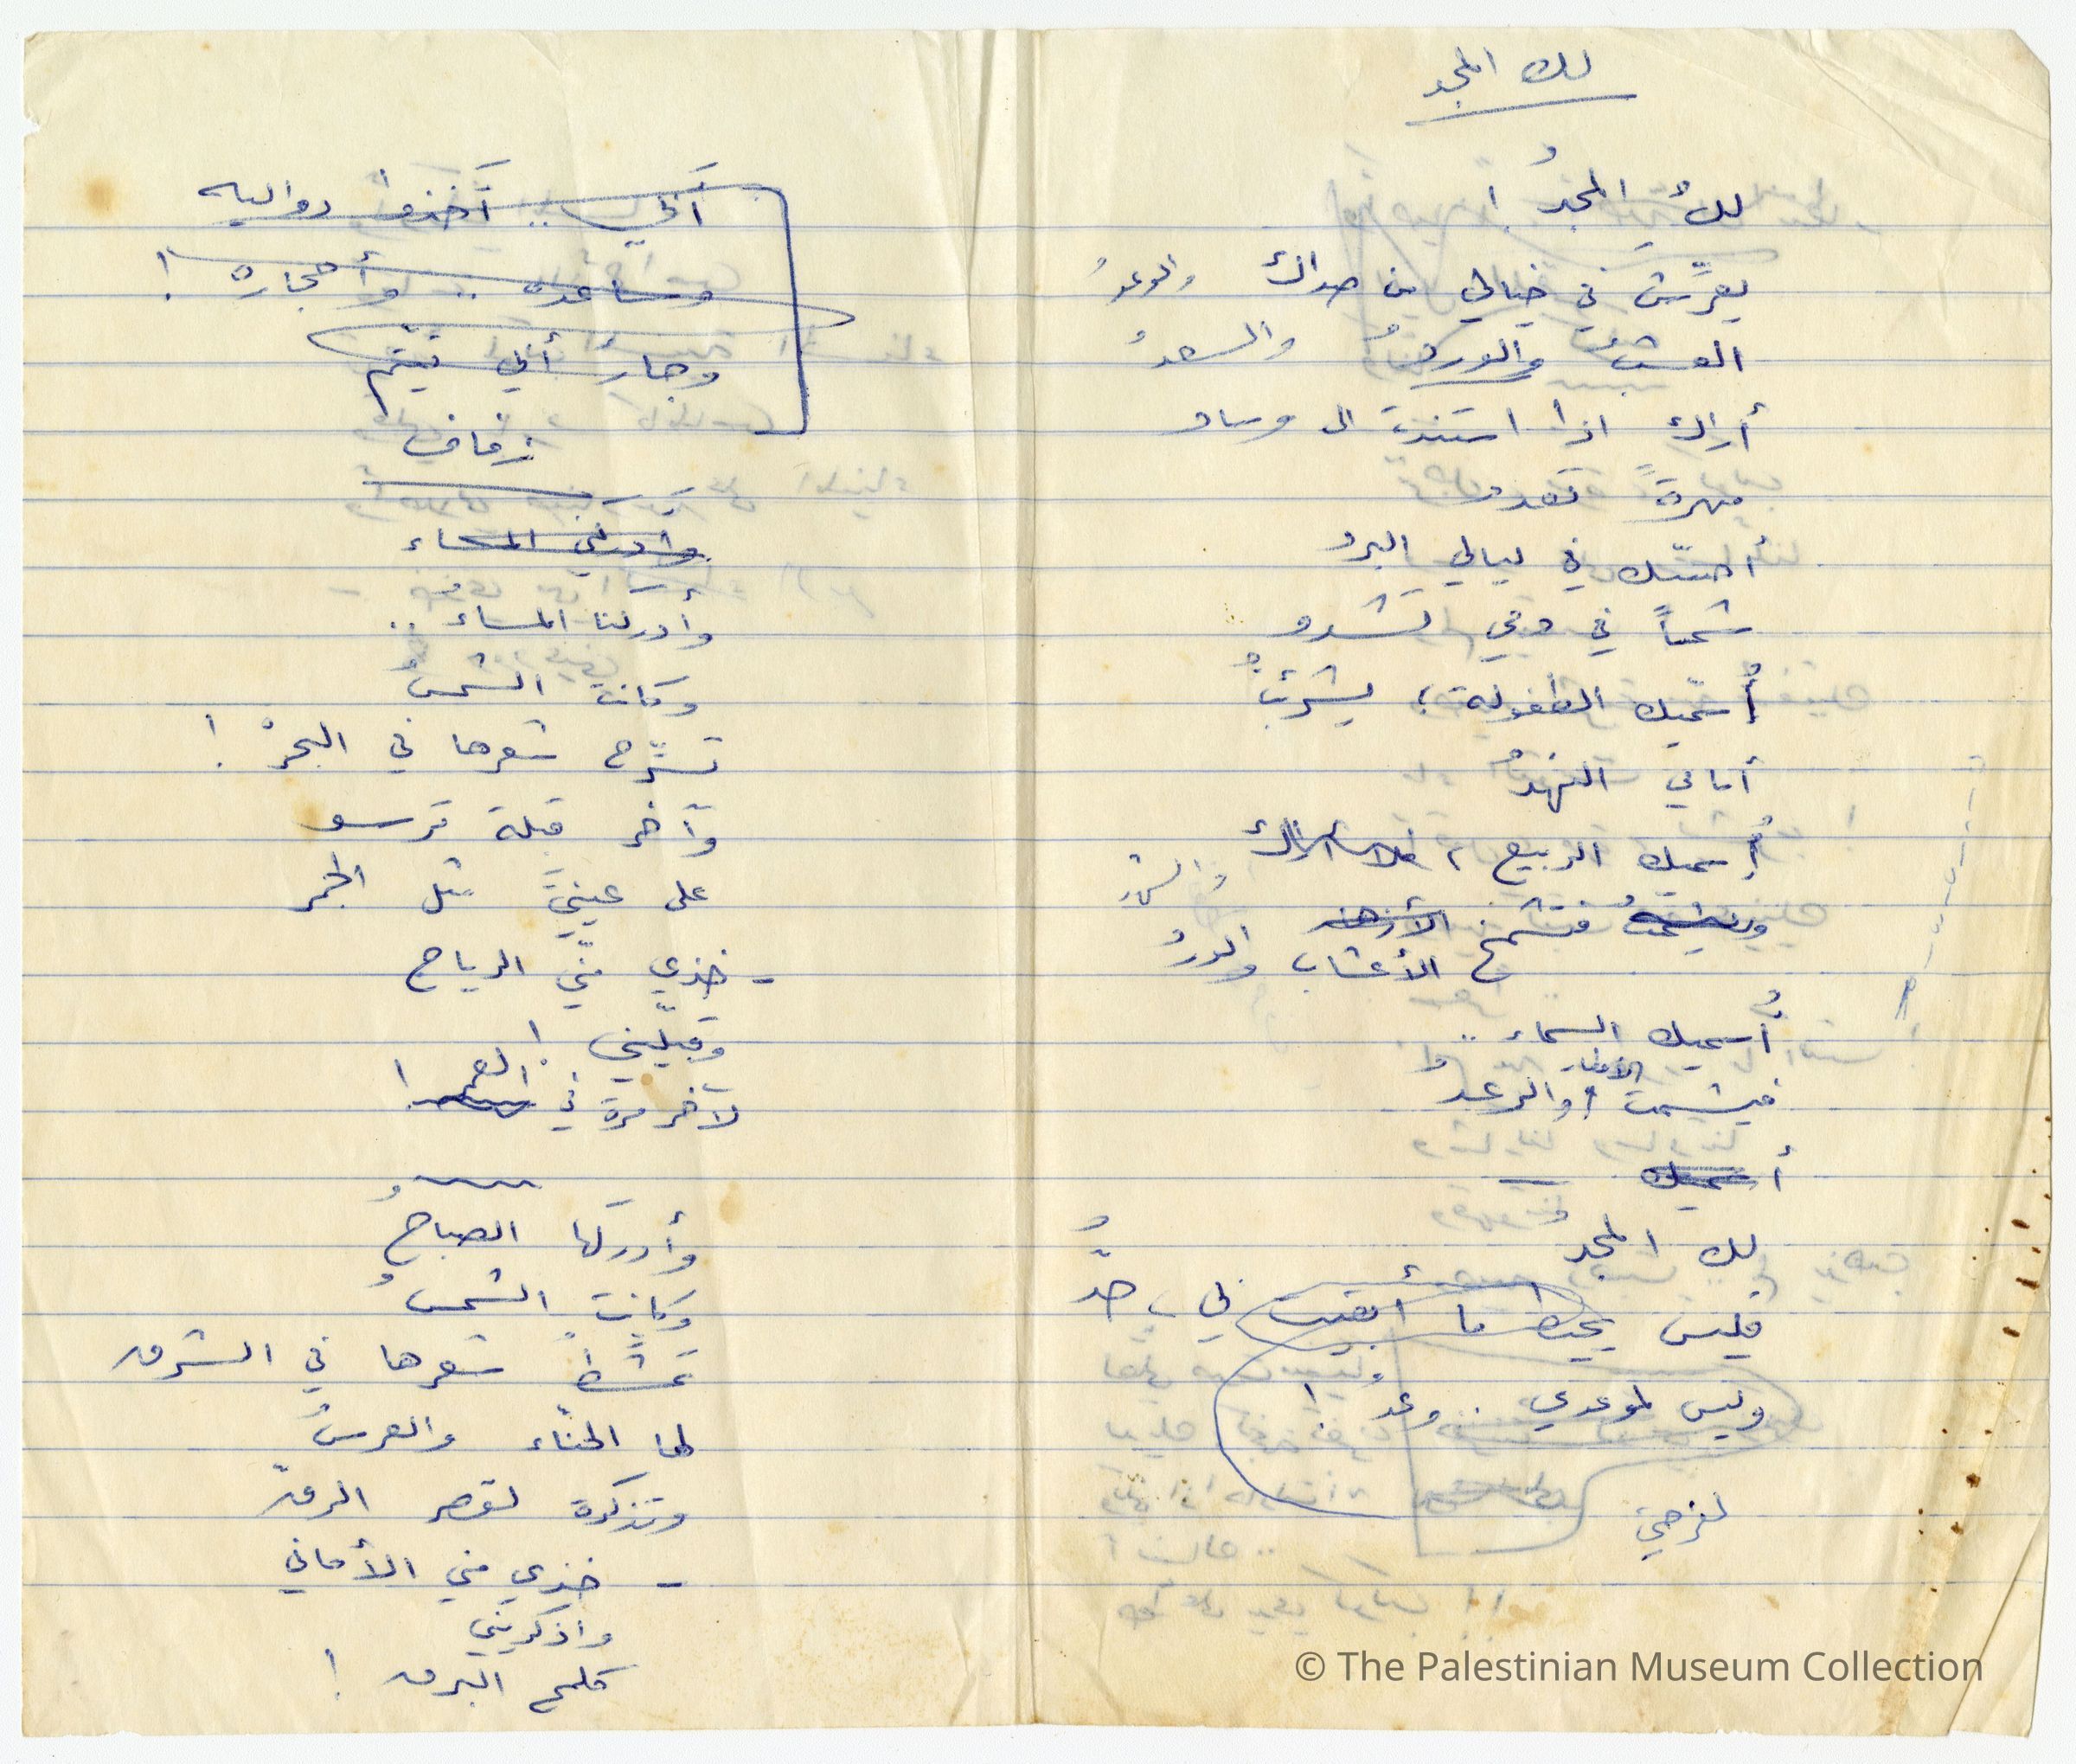 لك المجد
لكِ المجدُ !
يعرِّش في خيالي من صداكِ والوعدُ
العشبُ والوردُ والسعدُ
أراكِ اذا استندت الى وساد
مهرةً تعدو
أحسّك في ليالي البرد
شمساً في دمي تشدو
أُسمّيك الطفولة ، يشرئبُّ
أمامي النهدُ
أُسميك الربيع ،
فتشمخ الأعشاب والوردُ
أُسميك السماء ..
فيشمت الأمطار والرعد
أسميك
لك المجدُ
فليس يحيط ما أبقيت لي ، حدُّ
وليس لموعدي . وعدُ !
لفرحتي
أبي .. آخذٌ دواليه
وساعده .. وأحجاره !
وجارُ أبي تيتّم
زفاف
وأدركني المساء
وأدركنا المساءُ ..
وكانت الشمسُ
تسرّح شعرها في البحرْ !
وآخر قبلة ترسو
على عينيَّ مثل الجمر
- خذي منّي الرياح
وقبّليني !
لآخر مرة في العمر !
وأدركها الصباحُ
وكانت الشمسُ
تمشّطُ شعرها في الشرق
لها الحنّاء والعرسُ
وتذكرة لقصر الرقّ
- خذي مني الأماني
واذكريني
كلمح البرق !
© The Palestinian Museum Collection